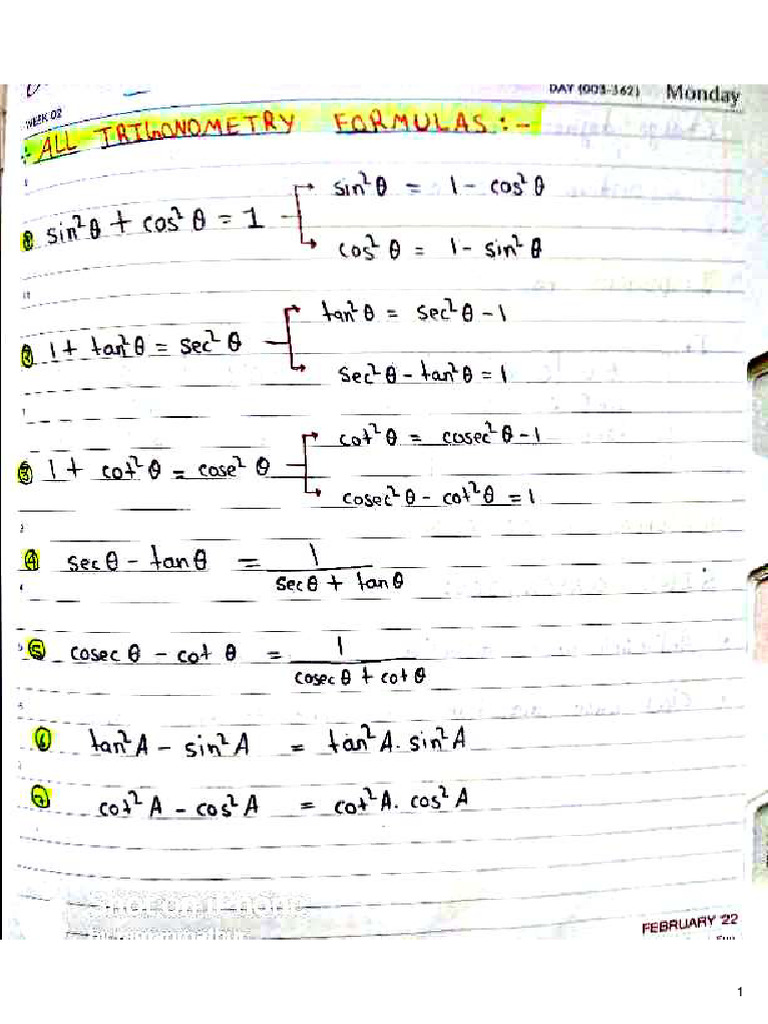 WEEK 02
DAY (003-362) Monday
ALL TRIGONOMETRY FORMULAS :-
① sin²θ + cos²θ = 1
sin²θ = 1 - cos²θ
cos²θ = 1 - sin²θ
② 1 + tan²θ = sec²θ
tan²θ = sec²θ - 1
sec²θ - tan²θ = 1
③ 1 + cot²θ = cose²θ
cot²θ = cosec²θ - 1
cosec²θ - cot²θ = 1
④ secθ - tanθ = 1 / secθ + tanθ
⑤ cosec θ - cot θ = 1 / cosec θ + cot θ
⑥ tan²A - sin²A = tan²A. sin²A
⑦ cot²A - cos²A = cot²A. cos²A
SHOT ON
FEBRUARY 22
1